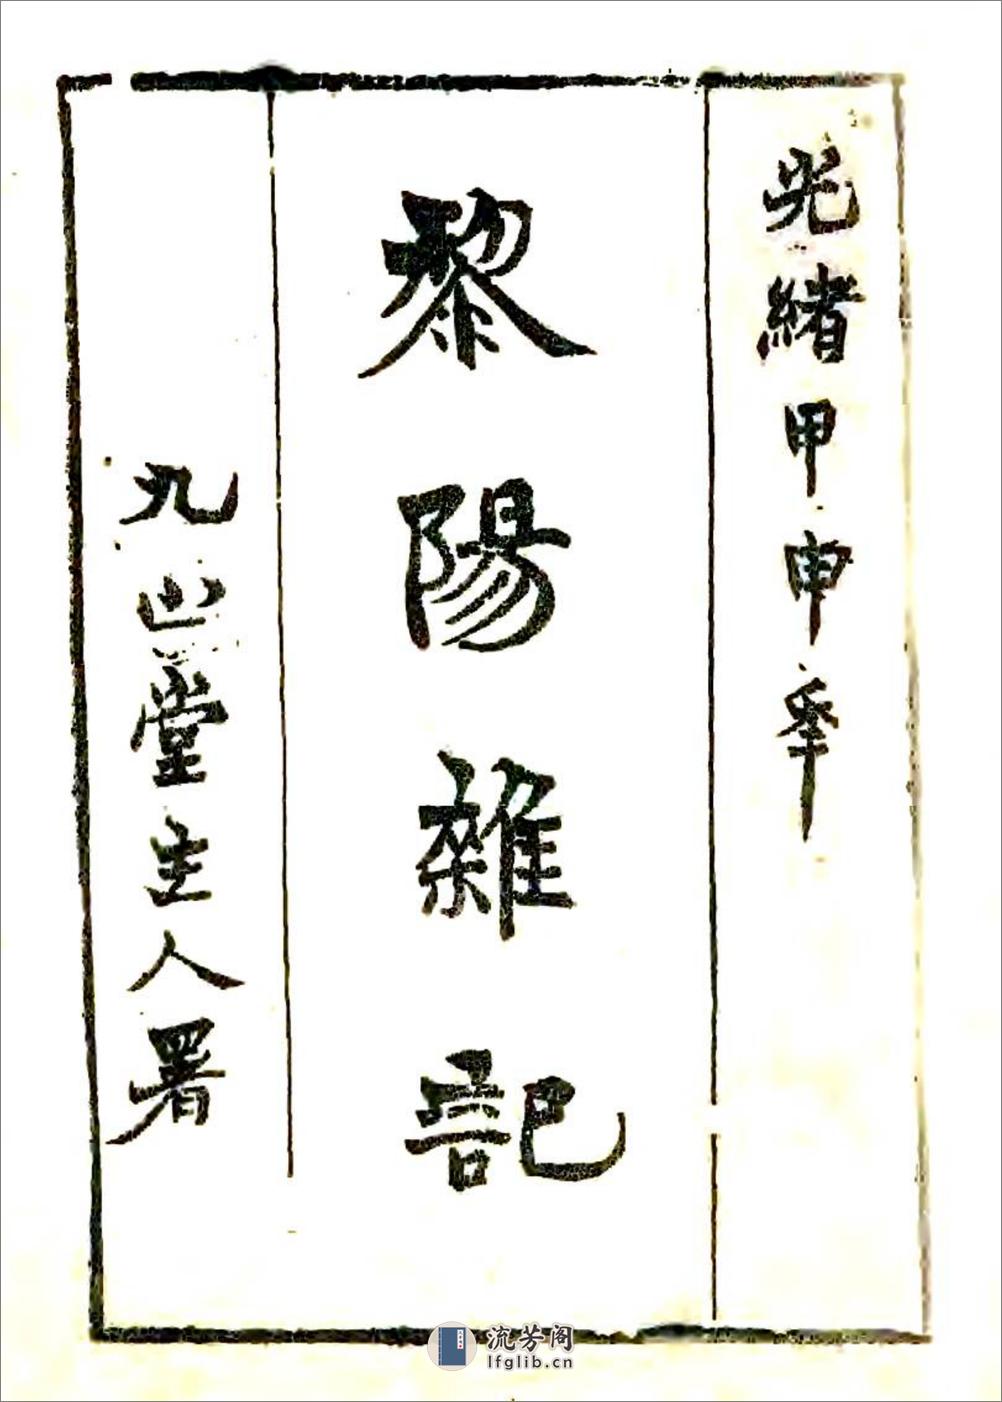 光緒甲申年
黎陽雜記
九山堂主人署
流芳阁
lfglib.cn